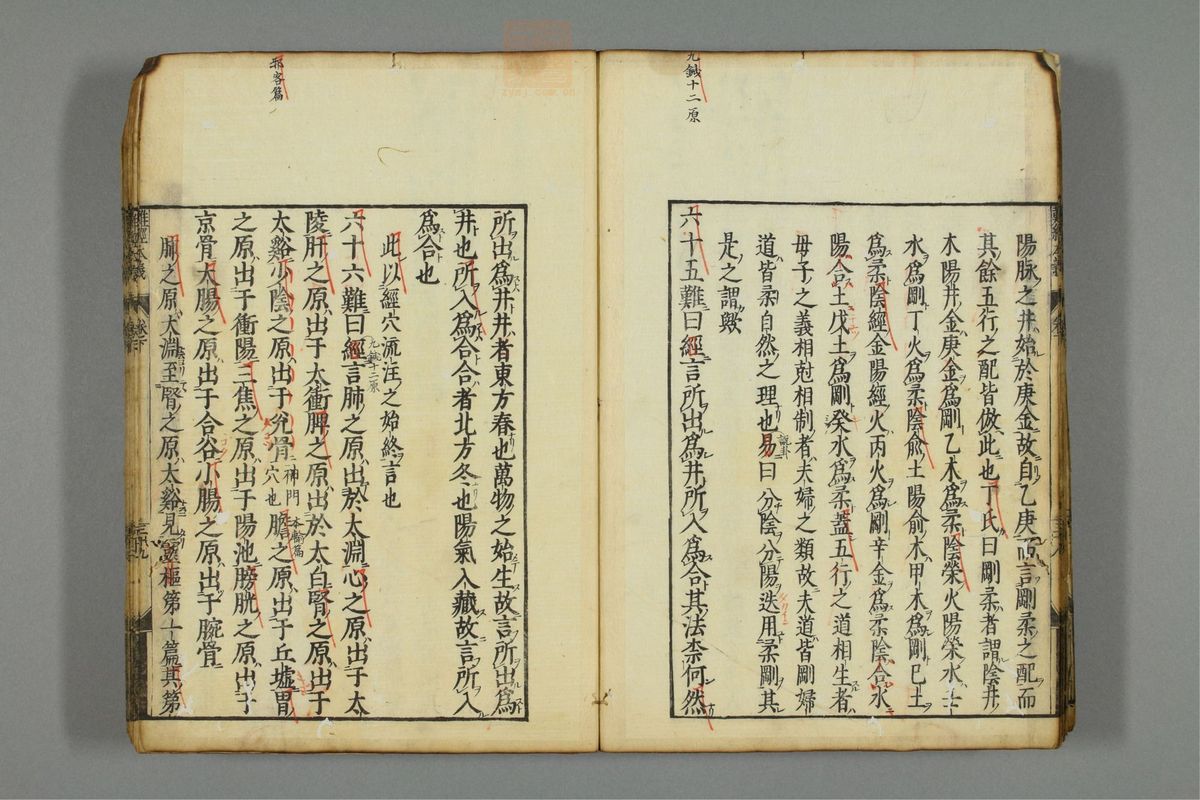 九鍼十二原
陽脉之井始於庚金故自乙庚而言剛柔之配而
其餘五行之配皆倣此也丁氏曰剛柔者謂陰井
木陽井金庚金爲剛乙木爲柔陰滎火陽滎水壬
水爲剛丁火爲柔陰兪土陽兪木甲木爲剛己土
爲柔陰經金陽經火丙火爲剛辛金爲柔陰合水
陽合土戊土爲剛癸水爲柔蓋五行之道相生者
母子之義相尅相制者夫婦之類故夫道皆剛婦
道皆柔自然之理也易曰分陰分陽迭用柔剛其
說卦
是之謂歟
六十五難曰經言所出爲井所入爲合其法柰何然
邪客篇
所出爲井井者東方春也萬物之始生故言所出爲
井也所入爲合合者北方冬也陽氣入藏故言所入
爲合也
此以經穴流注之始終言也
六十六難曰經言肺之原出於太淵心之原出于太
九鍼十二原
陵肝之原出于太衝脾之原出於太白腎之原出于
太谿少陰之原出于兊骨神門穴也膽之原出于丘墟胃
本輸篇
之原出于衝陽三焦之原出于陽池膀胱之原出于
京骨大腸之原出于合谷小腸之原出于腕骨
肺之原大淵至腎之原太谿見靈樞第一篇其第